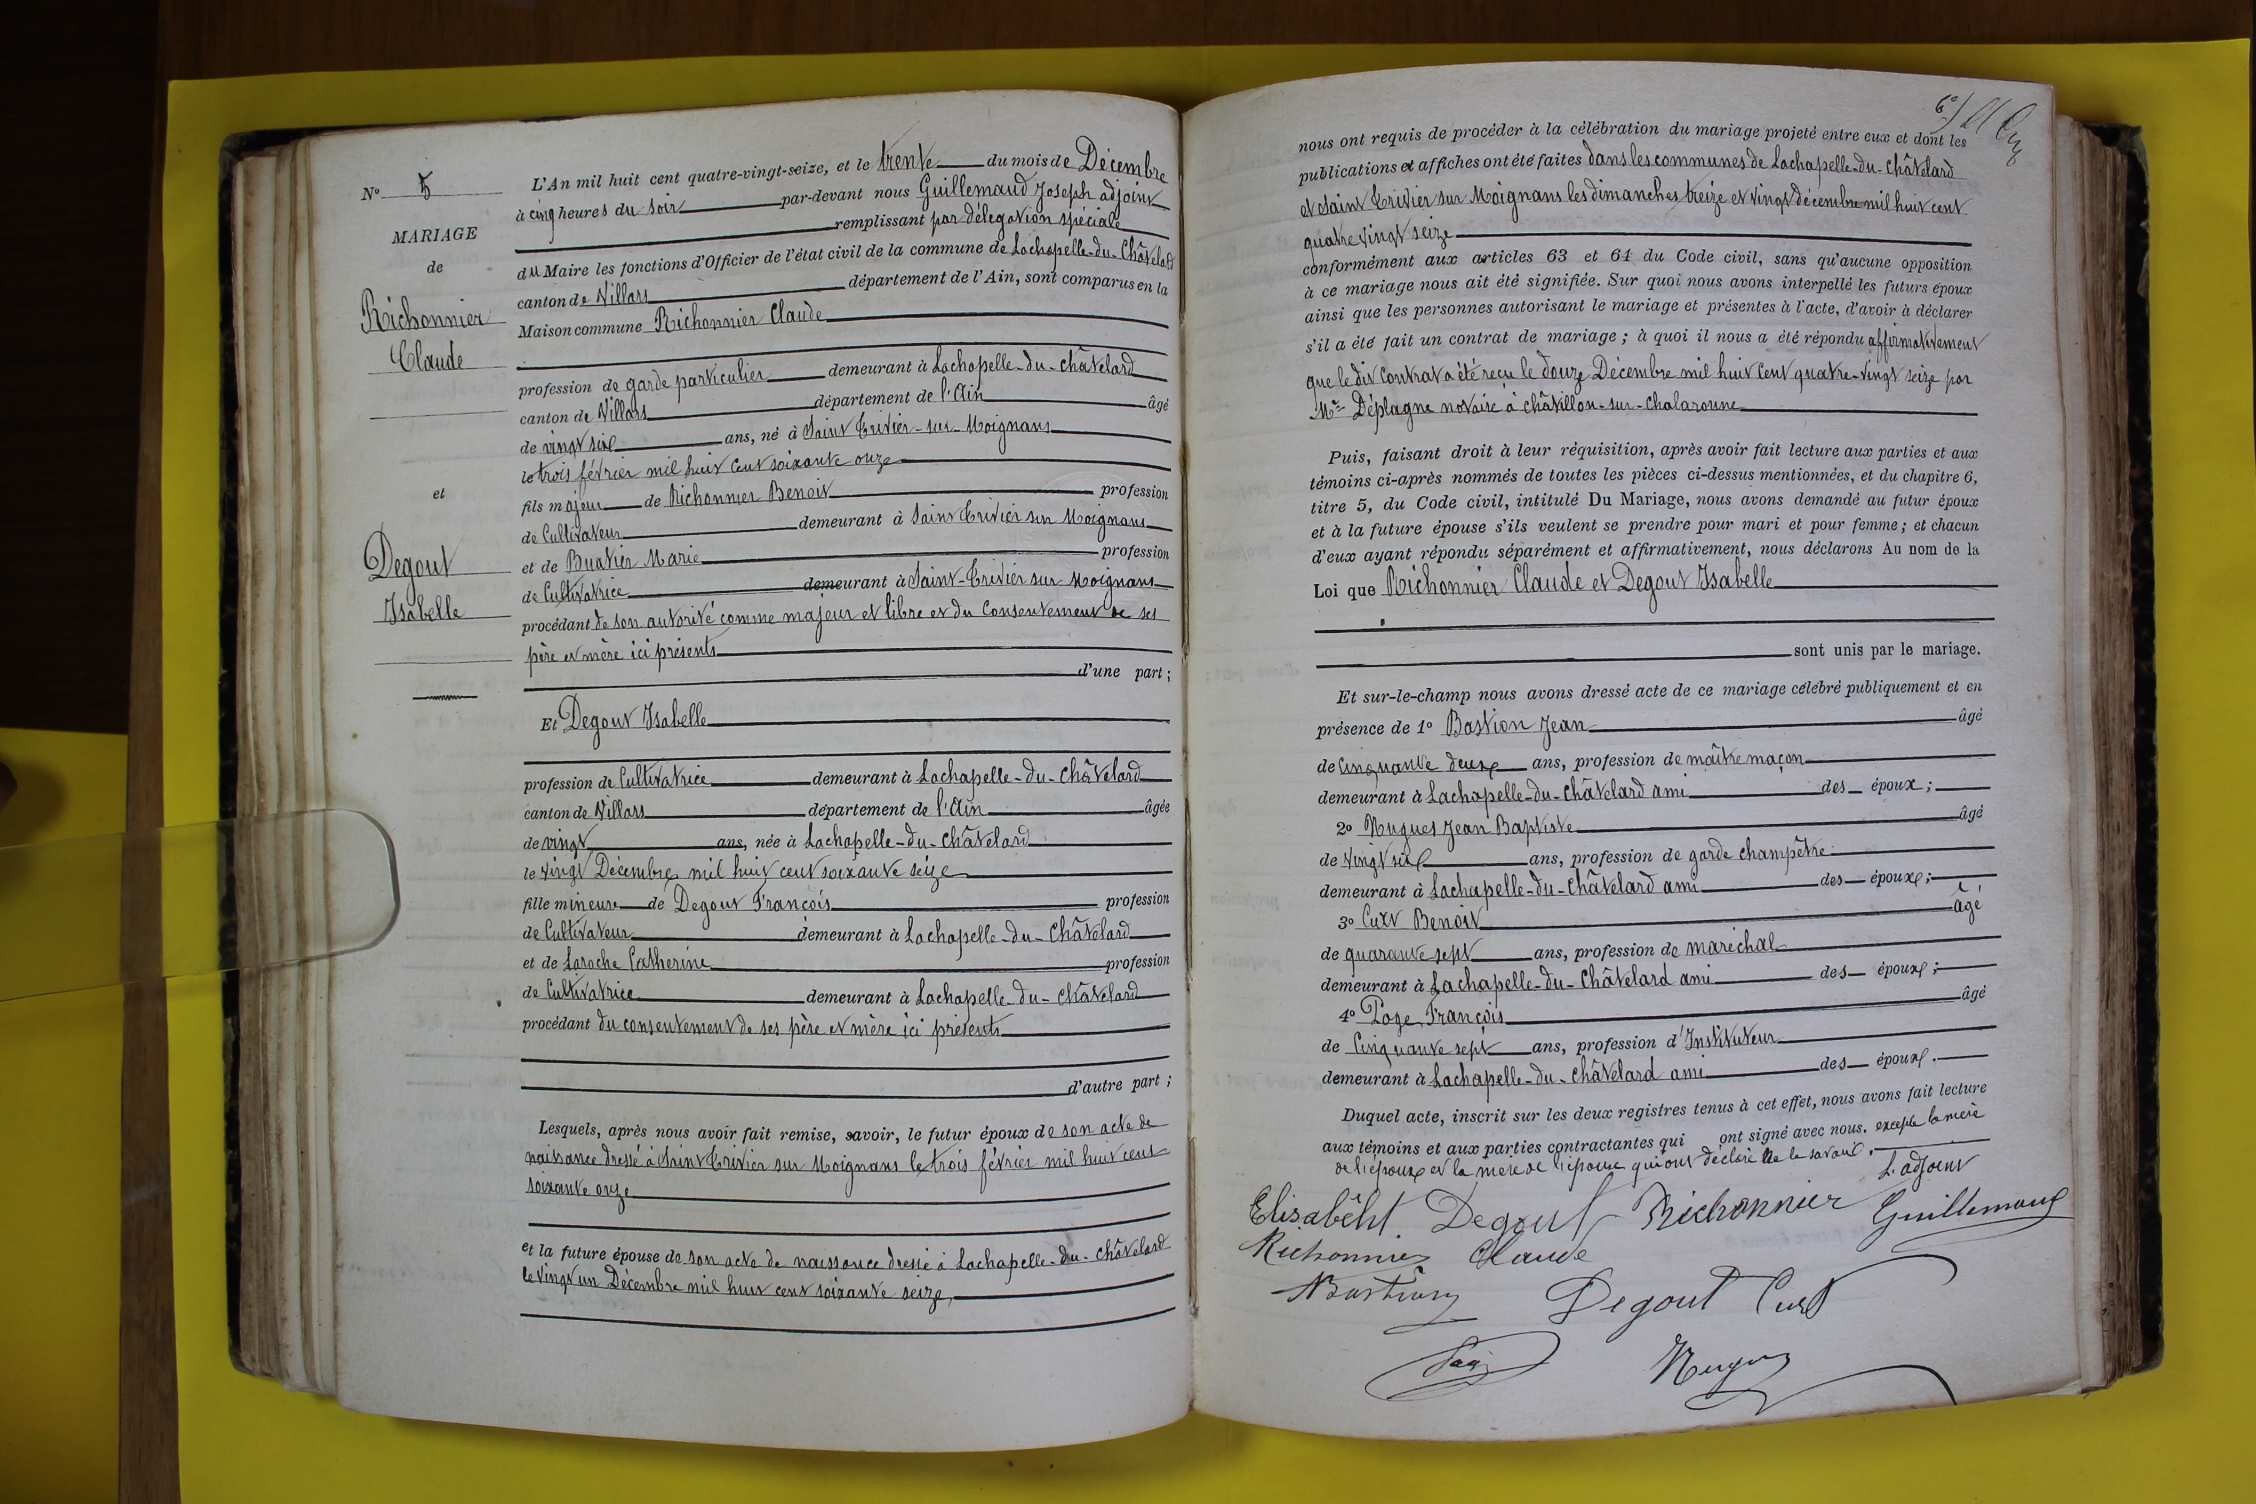 N° 5
MARIAGE
de
Richonnier
Claude
et
Degout
Isabelle
L'An mil huit cent quatre-vingt-seize, et le trente du mois de Décembre
à cinq heures du soir par-devant nous Guillemaud Joseph adjoint
remplissant par délégation spéciale
du Maire les fonctions d'Officier de l'état civil de la commune de Lachapelle-du-Châtelard
canton de Villars département de l'Ain, sont comparus en la
Maison commune Richonnier Claude
profession de garde particulier demeurant à Lachapelle-du-Châtelard
canton de Villars département de l'Ain âgé
de vingt six ans, né à Saint Trivier-sur-Moignans
le trois février mil huit cent soixante onze
fils majeur de Richonnier Benoit profession
de Cultivateur demeurant à Saint Trivier sur Moignans
et de Buatier Marie profession
de Cultivatrice demeurant à Saint-Trivier sur Moignans
procédant de son autorité comme majeur et libre et du Consentement de ses
père et mère ici présents
d'une part ;
Et Degout Isabelle
profession de Cultivatrice demeurant à Lachapelle-du-Châtelard
canton de Villars département de l'Ain âgée
de vingt ans, née à Lachapelle-du-Châtelard
le vingt Décembre mil huit cent soixante seize
fille mineure de Degout François profession
de Cultivateur demeurant à Lachapelle-du-Châtelard
et de Laroche Catherine profession
de Cultivatrice demeurant à Lachapelle-du-Châtelard
procédant du consentement de ses père et mère ici présents
d'autre part ;
Lesquels, après nous avoir fait remise, savoir, le futur époux de son acte de
naissance dressé à Saint Trivier sur Moignans le trois février mil huit cent
soixante onze
et la future épouse de son acte de naissance dressé à Lachapelle-du-Châtelard
le vingt un Décembre mil huit cent soixante seize,
nous ont requis de procéder à la célébration du mariage projeté entre eux et dont les
publications et affiches ont été faites dans les communes de Lachapelle-du-Châtelard
et Saint Trivier sur Moignans les dimanches treize et vingt décembre mil huit cent
quatre vingt seize
conformément aux articles 63 et 64 du Code civil, sans qu'aucune opposition
à ce mariage nous ait été signifiée. Sur quoi nous avons interpellé les futurs époux
ainsi que les personnes autorisant le mariage et présentes à l'acte, d'avoir à déclarer
s'il a été fait un contrat de mariage ; à quoi il nous a été répondu affirmativement
que le dit Contrat a été reçu le douze Décembre mil huit cent quatre-vingt seize par
Me Déplagne notaire à Châtillon-sur-Chalaronne
Puis, faisant droit à leur réquisition, après avoir fait lecture aux parties et aux
témoins ci-après nommés de toutes les pièces ci-dessus mentionnées, et du chapitre 6,
titre 5, du Code civil, intitulé Du Mariage, nous avons demandé au futur époux
et à la future épouse s'ils veulent se prendre pour mari et pour femme ; et chacun
d'eux ayant répondu séparément et affirmativement, nous déclarons Au nom de la
Loi que Richonnier Claude et Degout Isabelle
sont unis par le mariage.
Et sur-le-champ nous avons dressé acte de ce mariage célébré publiquement et en
présence de 1° Bastion Jean âgé
de cinquante deux ans, profession de maître maçon
demeurant à Lachapelle-du-Châtelard ami des époux ;
2° Nugues Jean Baptiste âgé
de vingt six ans, profession de garde champêtre
demeurant à Lachapelle-du-Châtelard ami des époux ;
3° Curt Benoit âgé
de quarante sept ans, profession de maréchal
demeurant à Lachapelle-du-Châtelard ami des époux ;
4° Page François âgé
de Cinquante sept ans, profession d'Instituteur
demeurant à Lachapelle-du-Châtelard ami des époux.
Duquel acte, inscrit sur les deux registres tenus à cet effet, nous avons fait lecture
aux témoins et aux parties contractantes qui ont signé avec nous. excepté la mère
de l'époux et la mère de l'épouse qui ont déclaré ne le savoir.
L'adjoint
Elisabêht Degout Richonnier Guillemaud
Richonnier Claude
Bastion Degout Curt
Page Nugues